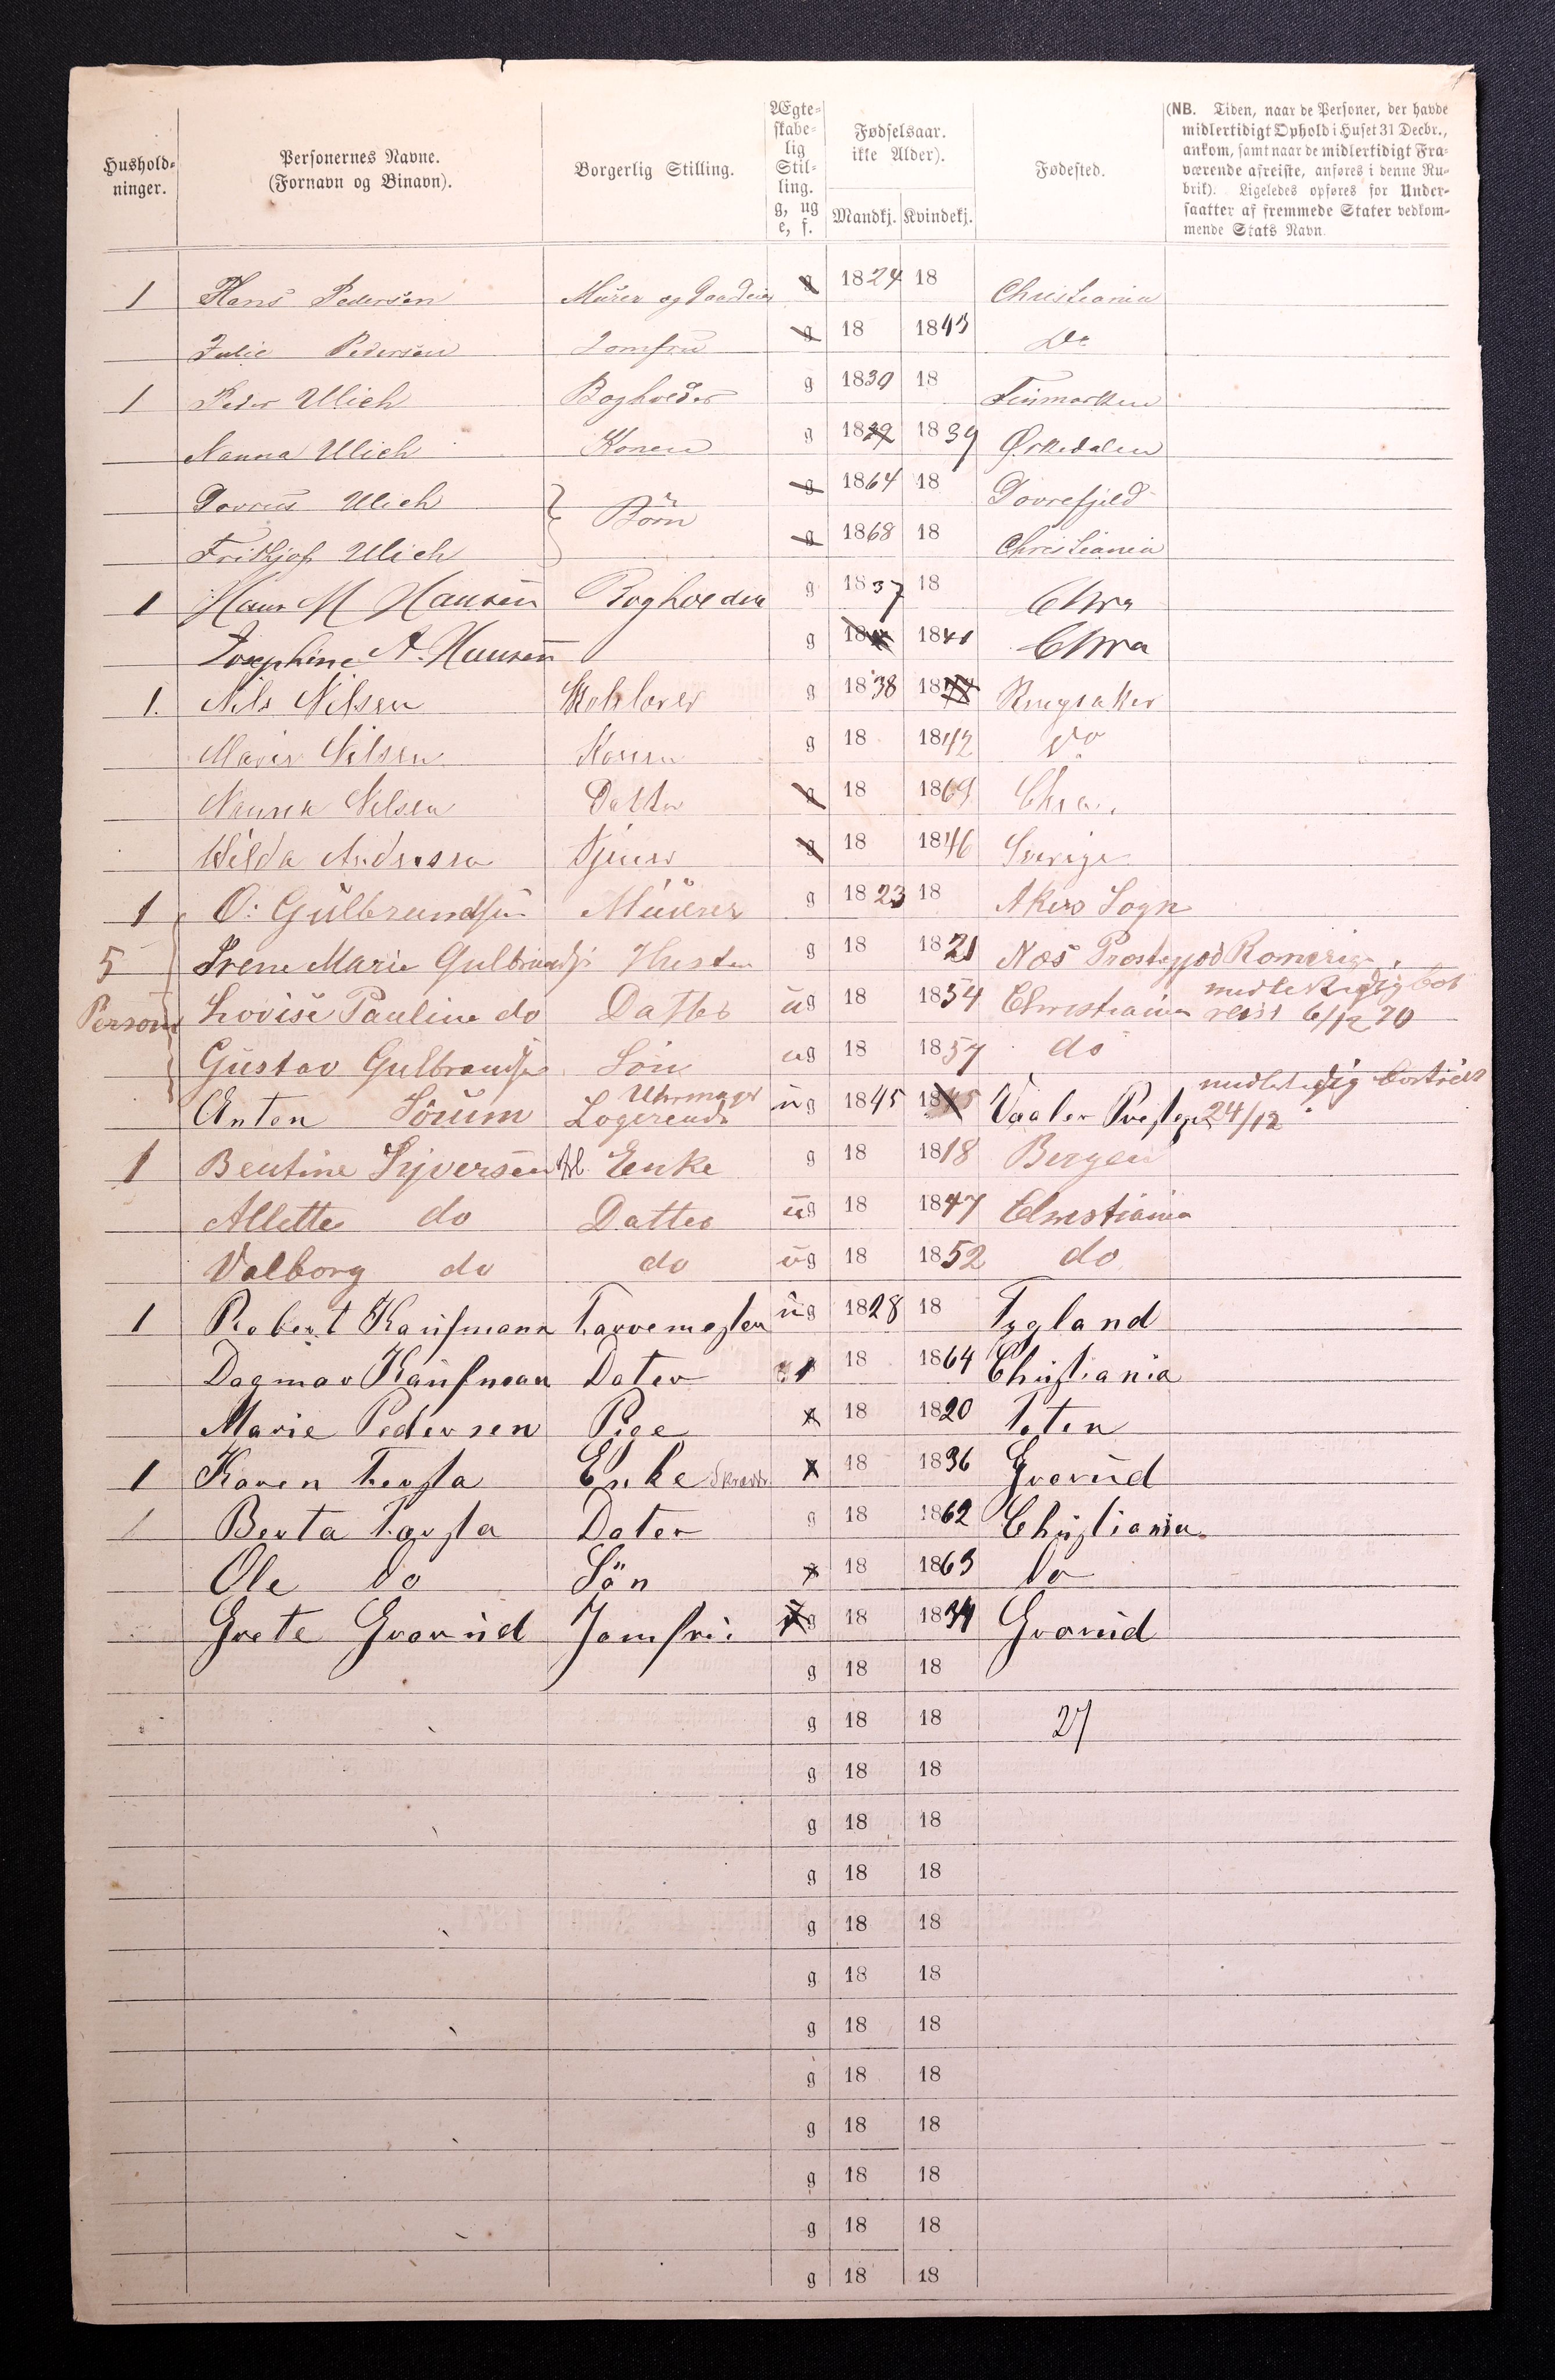 Hushold-
ninger.
Personernes Navne.
(Fornavn og Binavn).
Borgerlig Stilling.
Ægte-
skabe-
lig
Stil-
ling.
g, ug
e, f.
Fødselsaar.
ikke Alder).
Mandkj. Kvindekj.
Fødested.
(NB. Tiden, naar de Personer, der havde
midlertidigt Ophold i Huset 31 Decbr.,
ankom, samt naar de midlertidigt Fra-
værende afreiste, anføres i denne Ru-
brik). Ligeledes opføres for Under-
saatter af fremmede Stater vedkom-
mende Stats Navn.
1 Hans Pedersen Murer og g 1824 18 Christiania
Julie Pedersen Jomfru g 18 1843 Do
1 Peder Ulich Bogholder g 1839 18 Finmarken
Nanna Ulich Konen g 1839 1839 Ørkedalen
Dovrus Ulich g 1864 18 Dovrefjeld
Børn
Fridtjof Ulich g 1868 18 Christiania
1 Hans M Hansen Bogholder g 1837 18 Chra
Josephine A. Hansen g 18 1841 Chra
1. Nils Nilsen g 1838 18 Ringsaker
Maria Nilsen Konen g 18 1842 Do
Nanna Nilsen Datter g 18 1869 Chra.
Hilda Andrssen g 18 1846 Sverige
1 O: Gulbrandsen Muurer g 1823 18 Akers Sogn
5 Irene Marie Gulbrands Hustr g 18 1821 Næs Prestegjæld Romerige.
Person Lovise Pauline do Datter ug 18 1854 Christiania midlertidig bort
reist 6/12 70
Gustav Gulbrands Søn ug 18 1857 do
Anton Sørum Uhrmager
Logerende ug 1845 1845 Vaaler Prestegj midlertidig bortreist
24/12
1 Bentine Syversen Enke g 18 1818 Bergen
Allette do Datter ug 18 1847 Christiania
Valborg do do ug 18 1852 do
1 Robert Kaufmann Farvemester ug 1828 18 Tyland
Dagmar Kaufmann Dater 18 1864 Christiania
Marie Pedersen Pige 18 1820 Toten
1 Karen Torsta Enke 18 1836 Grorud
Berta Torsta Dater g 18 1862 Christiania
Ole Do Søn 18 1863 Do
Grete Grorud Jomfru 18 1834 Grorud
g 18 18
g 18 18 27
g 18 18
g 18 18
g 18 18
g 18 18
g 18 18
g 18 18
g 18 18
g 18 18
g 18 18
g 18 18
g 18 18